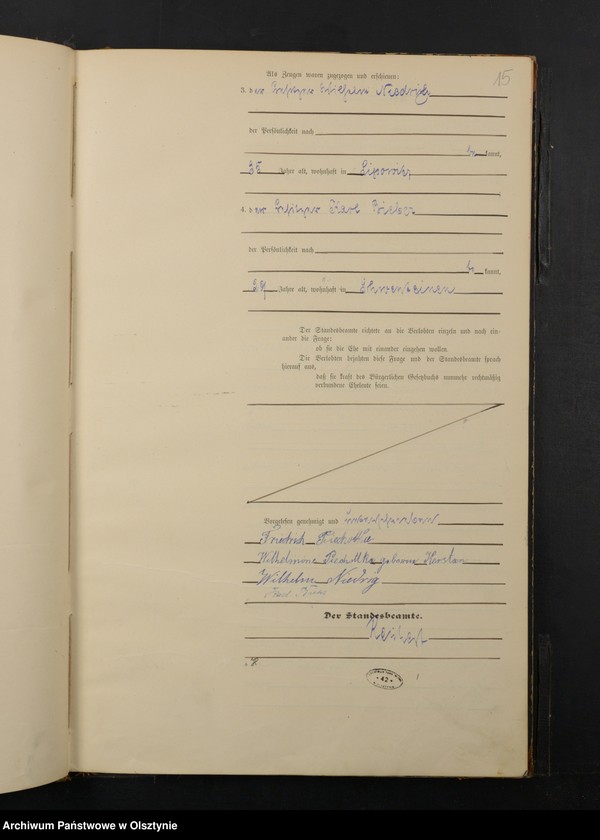 15
Als Zeugen waren zugezogen und erschienen:
3. der Besitzer Wilhelm Niedrig
der Persönlichkeit nach
be kannt,
35 Jahre alt, wohnhaft in Lipowitz
4. der Besitzer Karl
der Persönlichkeit nach
be kannt,
Jahre alt, wohnhaft in
Der Standesbeamte richtete an die Verlobten einzeln und nach ein-
ander die Frage:
ob sie die Ehe mit einander eingehen wollen.
Die Verlobten bejahten diese Frage und der Standesbeamte sprach
hierauf aus,
daß sie kraft des Bürgerlichen Gesetzbuchs nunmehr rechtmäßig
verbundene Eheleute seien.
Vorgelesen, genehmigt und unterschrieben
Friedrich
Wilhelmine geborene
Wilhelm Niedrig
Der Standesbeamte.
42
Archiwum Państwowe w Olsztynie